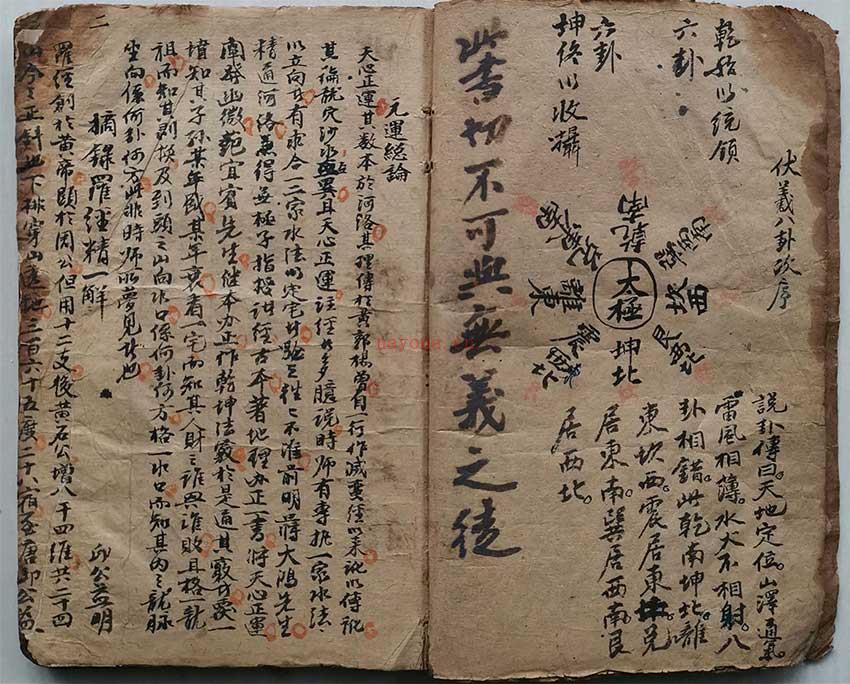 伏羲八卦次序
乾始以统领
六卦
坤佟以收攝
六卦
太極
乾南
兌東南
離東
震東北
巽西南
坎西
艮西北
坤北
説卦傳曰。天地定位。山澤通氣。
雷風相薄。水火不相射。八
卦相錯。此乾南坤北。離
東坎西。震居東北。兌
居東南。巽居西南。艮
居西北。
此書切不可與無義之徒
元運總論
天心正運其数本於河洛其理傳於黄郭楊曽自一行作滅蛮經以來訛以傳訛
其論龍穴沙水 異且天心正運註經者多臆説時师有專執一家水法
以立向者有求合一二家水法以定宅者騐之往々不準前明蔣大鴻先生
精通河洛兼得無極子指授註經古本著地理办正一書将天心正運
闡發幽微范宜賓先生継本办正作乾坤法竅於是通其竅者覌一
墳知其子孫某年盛某年衰看一宅而知其人財之誰興誰敗且格龍
祖而知其剥换及到頭之山向水口係何卦何方格一水口而知其内之龍脉
坐向係何卦何方此非時师所夢見者也
摘錄羅經精一解
邱公益明
羅經創於黄帝顕於周公但用十二支後黄石公増八干四維共二十四
山令之正斜地下排穿山透地三百六十五度二十八宿至唐邱公益
二
nayona.cn